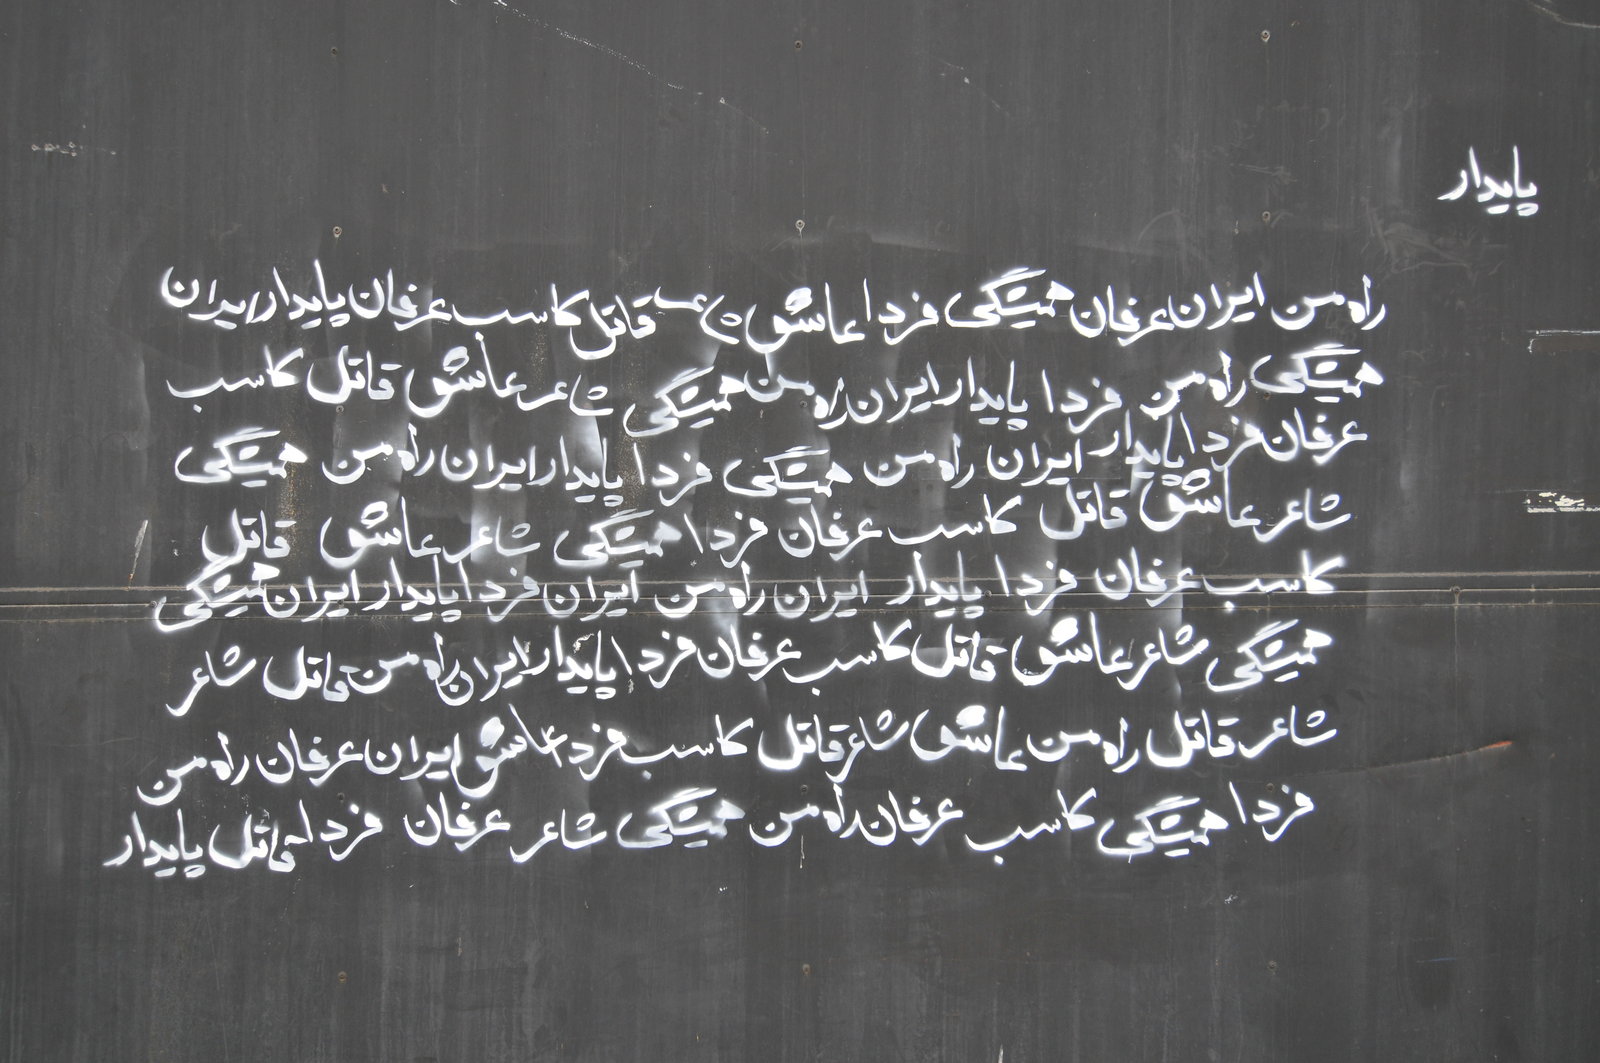 پایدار
راه من ایران عرفان همیشگی فردا عاشق قاتل کاسب عرفان پایدار ایران
همیشگی راه من فردا پایدار ایران راه من همیشگی شاعر عاشق قاتل کاسب
عرفان فردا پایدار ایران راه من همیشگی فردا پایدار ایران راه من همیشگی
شاعر عاشق قاتل کاسب عرفان فردا همیشگی شاعر عاشق قاتل
کاسب عرفان فردا پایدار ایران راه من ایران فردا پایدار ایران همیشگی
همیشگی شاعر عاشق قاتل کاسب عرفان فردا پایدار ایران راه من قاتل شاعر
شاعر قاتل راه من عاشق شاعر قاتل کاسب فردا عاشق ایران عرفان راه من
فردا همیشگی کاسب عرفان راه من همیشگی شاعر عرفان فردا قاتل پایدار